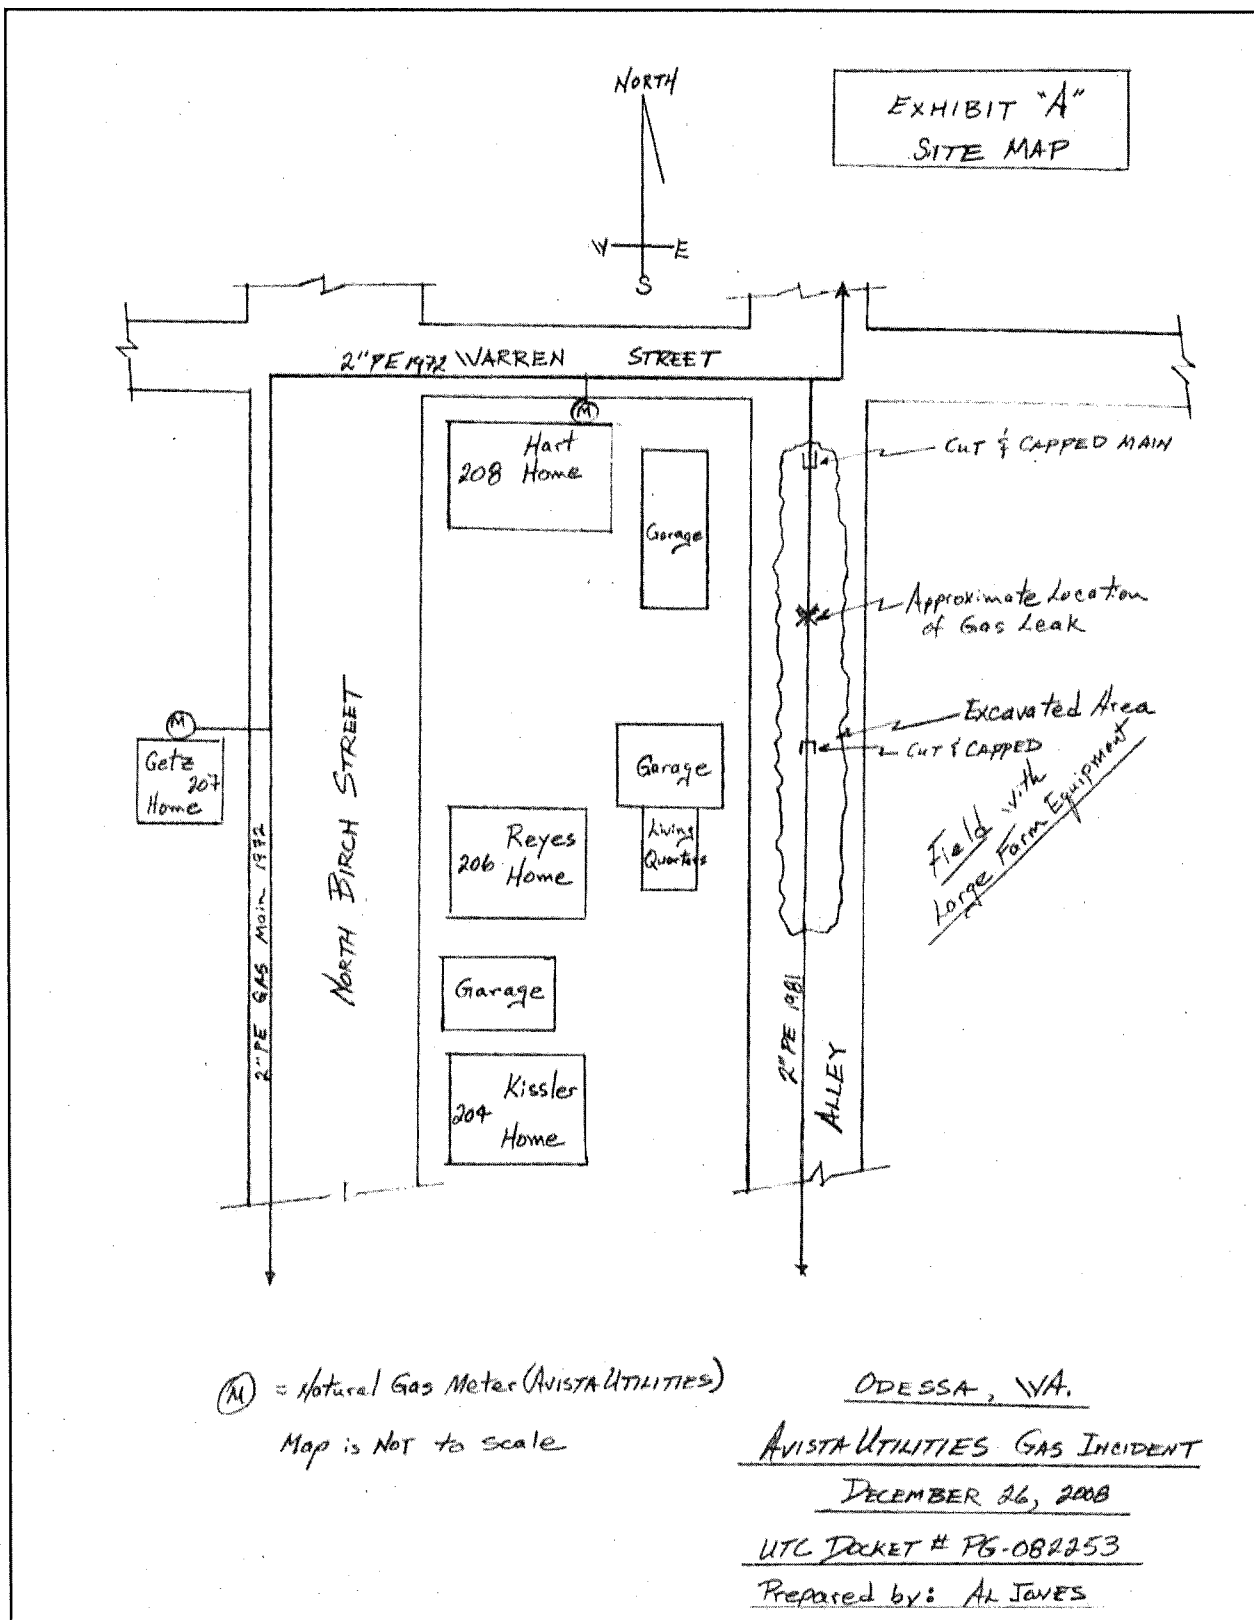 NORTH
EXHIBIT "A"
SITE MAP
W E
S
2" PE 1972 WARREN STREET
M
Hart
208 Home
Garage
CUT & CAPPED MAIN
Approximate Location
of Gas Leak
Excavated Area
CUT & CAPPED
Field with
Large Farm Equipment
M
Getz
207
Home
Garage
Living
Quarters
Reyes
206 Home
Garage
Kissler
204
Home
NORTH BIRCH STREET
2" PE GAS Main 1972
2" PE 1981
ALLEY
M = Natural Gas Meter (AVISTA UTILITIES)
Map is NOT to scale
ODESSA, WA.
AVISTA UTILITIES GAS INCIDENT
DECEMBER 26, 2008
UTC DOCKET # PG-082253
Prepared by: AL JONES